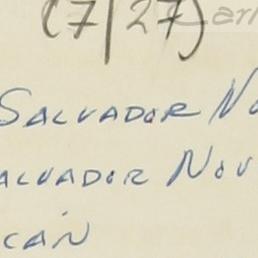 (7/27)
SALVADOR No
ALVADOR NOV
CÁN